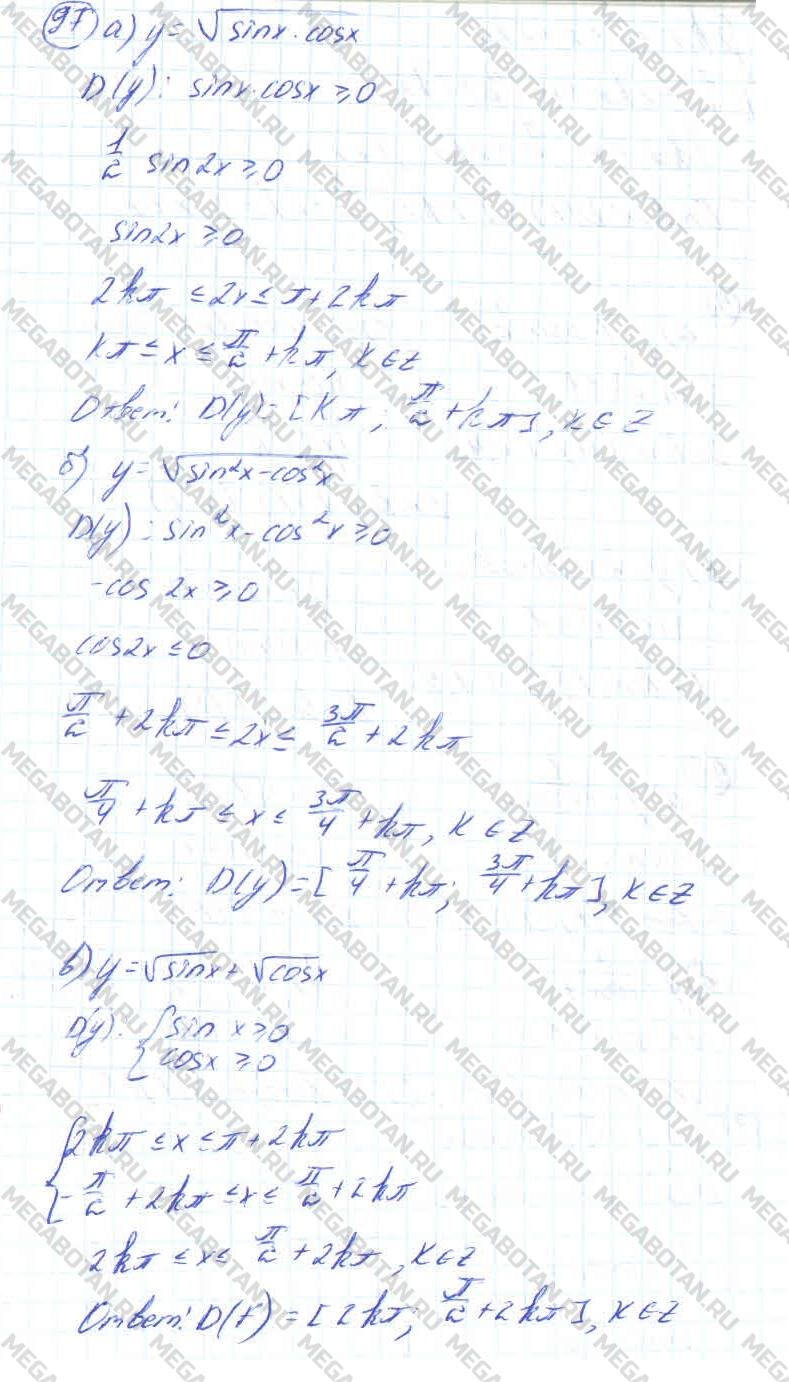 97) а) y = √(sinx · cosx)
D(y): sinx cosx ≥ 0
1/2 sin2x ≥ 0
sin2x ≥ 0
2kπ ≤ 2x ≤ π + 2kπ
kπ ≤ x ≤ π/2 + kπ, k ∈ Z
Ответ: D(y) = [kπ; π/2 + kπ], k ∈ Z
б) y = √(sin²x - cos²x)
D(y): sin²x - cos²x ≥ 0
-cos 2x ≥ 0
cos2x ≤ 0
π/2 + 2kπ ≤ 2x ≤ 3π/2 + 2kπ
π/4 + kπ ≤ x ≤ 3π/4 + kπ, k ∈ Z
Ответ: D(y) = [π/4 + kπ; 3π/4 + kπ], k ∈ Z
в) y = √sinx + √cosx
D(y): { sin x ≥ 0
cosx ≥ 0
{ 2kπ ≤ x ≤ π + 2kπ
-π/2 + 2kπ ≤ x ≤ π/2 + 2kπ
2kπ ≤ x ≤ π/2 + 2kπ, k ∈ Z
Ответ: D(f) = [2kπ; π/2 + 2kπ], k ∈ Z
MEGABOTAN.RU